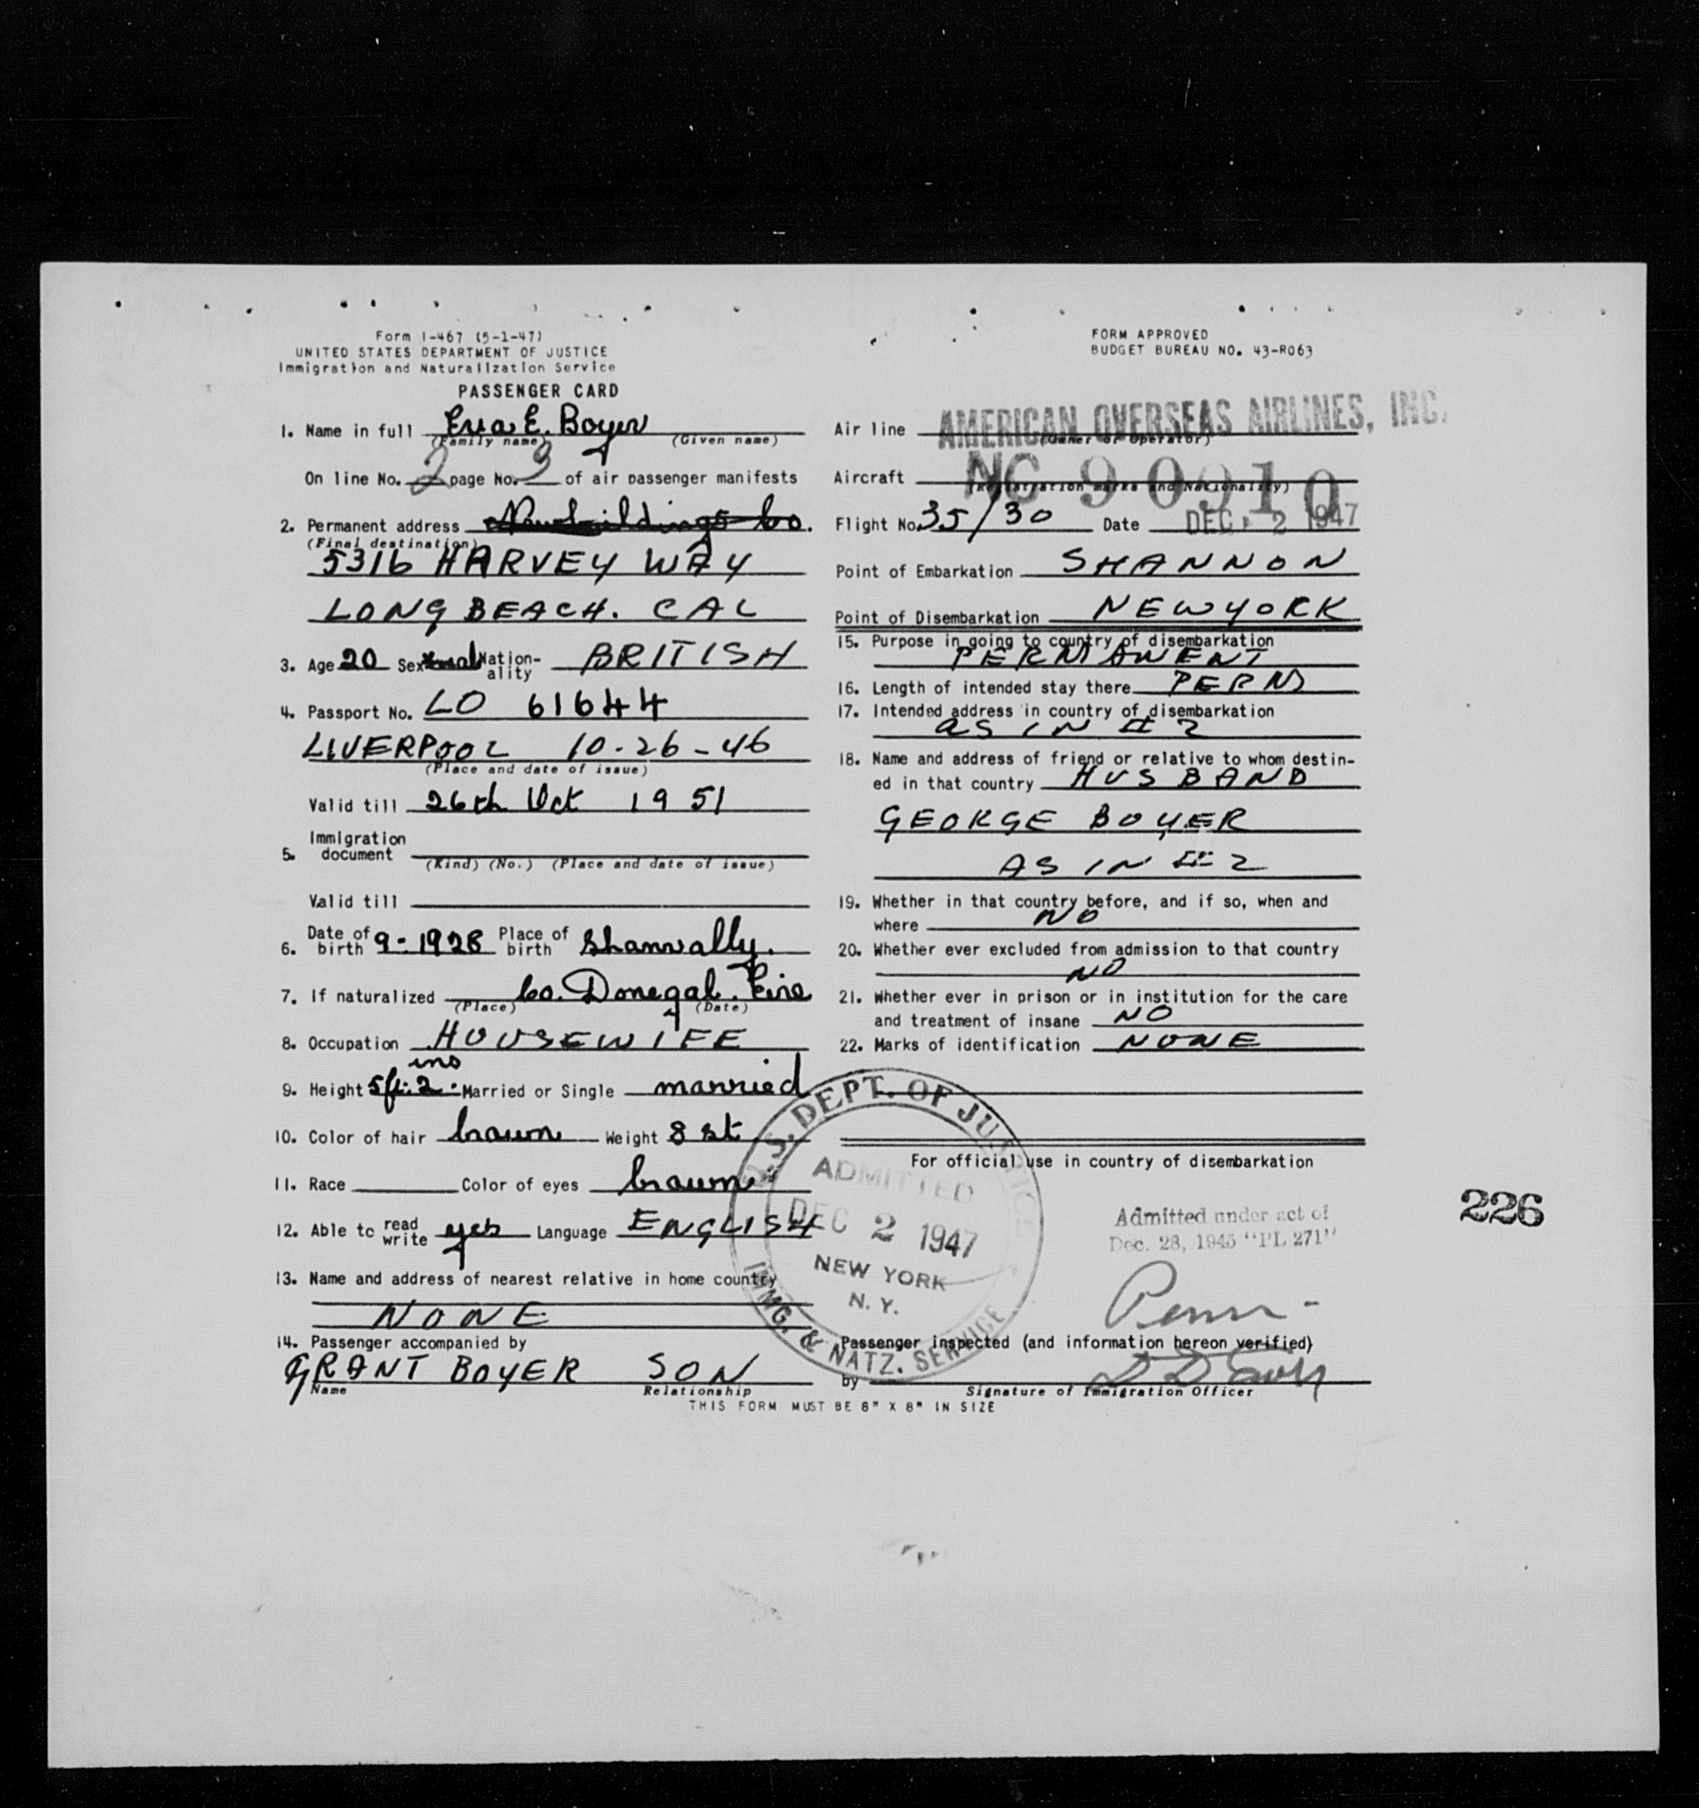 Form I-467 (5-1-47)
UNITED STATES DEPARTMENT OF JUSTICE
Immigration and Naturalization Service
PASSENGER CARD
FORM APPROVED
BUDGET BUREAU NO. 43-R063
1. Name in full Eva E. Boyer
(Family name) (Given name)
On line No. 2 page No. 3 of air passenger manifests
2. Permanent address Newbuildings Co.
(Final destination)
5316 HARVEY WAY
LONG BEACH. CAL
3. Age 20 Sex Nation-ality BRITISH
4. Passport No. LO 61644
LIVERPOOL 10-26-46
(Place and date of issue)
Valid till 26th Oct 1951
5. Immigration document
(Kind) (No.) (Place and date of issue)
Valid till
6. Date of birth 9-1928 Place of birth Shannally.
7. If naturalized Co. Donegal. Eire
(Place) (Date)
8. Occupation HOUSEWIFE
ins
9. Height 5ft. 2. Married or Single married
10. Color of hair brown Weight 8 st.
11. Race Color of eyes brown
12. Able to read write yes Language ENGLISH
13. Name and address of nearest relative in home country
NONE
14. Passenger accompanied by
GRANT BOYER SON
Name Relationship
Air line AMERICAN OVERSEAS AIRLINES, INC.
(Owner or Operator)
Aircraft NC 90910
(Registration marks and Nationality)
Flight No. 35/30 Date DEC 2 1947
Point of Embarkation SHANNON
Point of Disembarkation NEW YORK
15. Purpose in going to country of disembarkation
PERMANENT
16. Length of intended stay there PERM
17. Intended address in country of disembarkation
AS IN # 2
18. Name and address of friend or relative to whom destin-
ed in that country HUSBAND
GEORGE BOYER
AS IN # 2
19. Whether in that country before, and if so, when and
where NO
20. Whether ever excluded from admission to that country
NO
21. Whether ever in prison or in institution for the care
and treatment of insane NO
22. Marks of identification NONE
For official use in country of disembarkation
U.S. DEPT. OF JUSTICE
ADMITTED
DEC 2 1947
NEW YORK
N. Y.
IMMG. & NATZ. SERVICE
Admitted under act of
Dec. 28, 1945 "PL 271"
226
Perm-
Passenger inspected (and information hereon verified)
by
Signature of Immigration Officer
THIS FORM MUST BE 8" X 8" IN SIZE